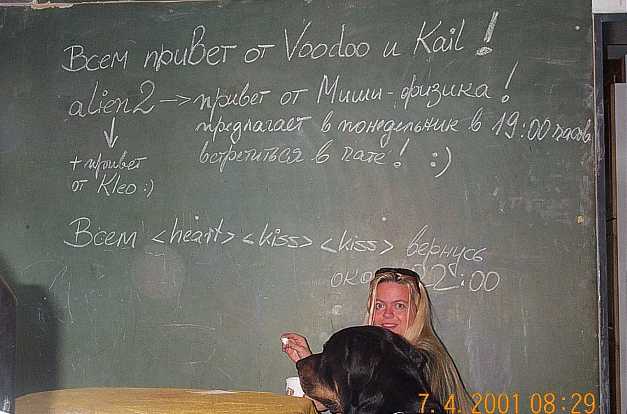 Всем привет от Voodoo и Kail!
alien2 → привет от Миши-физика!
предлагает в понедельник в 19:00 часов
встретиться в пате! :)
+ привет
от Kleo :)
Всем <heart> <kiss> <kiss> вернусь
22:00
7. 4. 2001 08:29